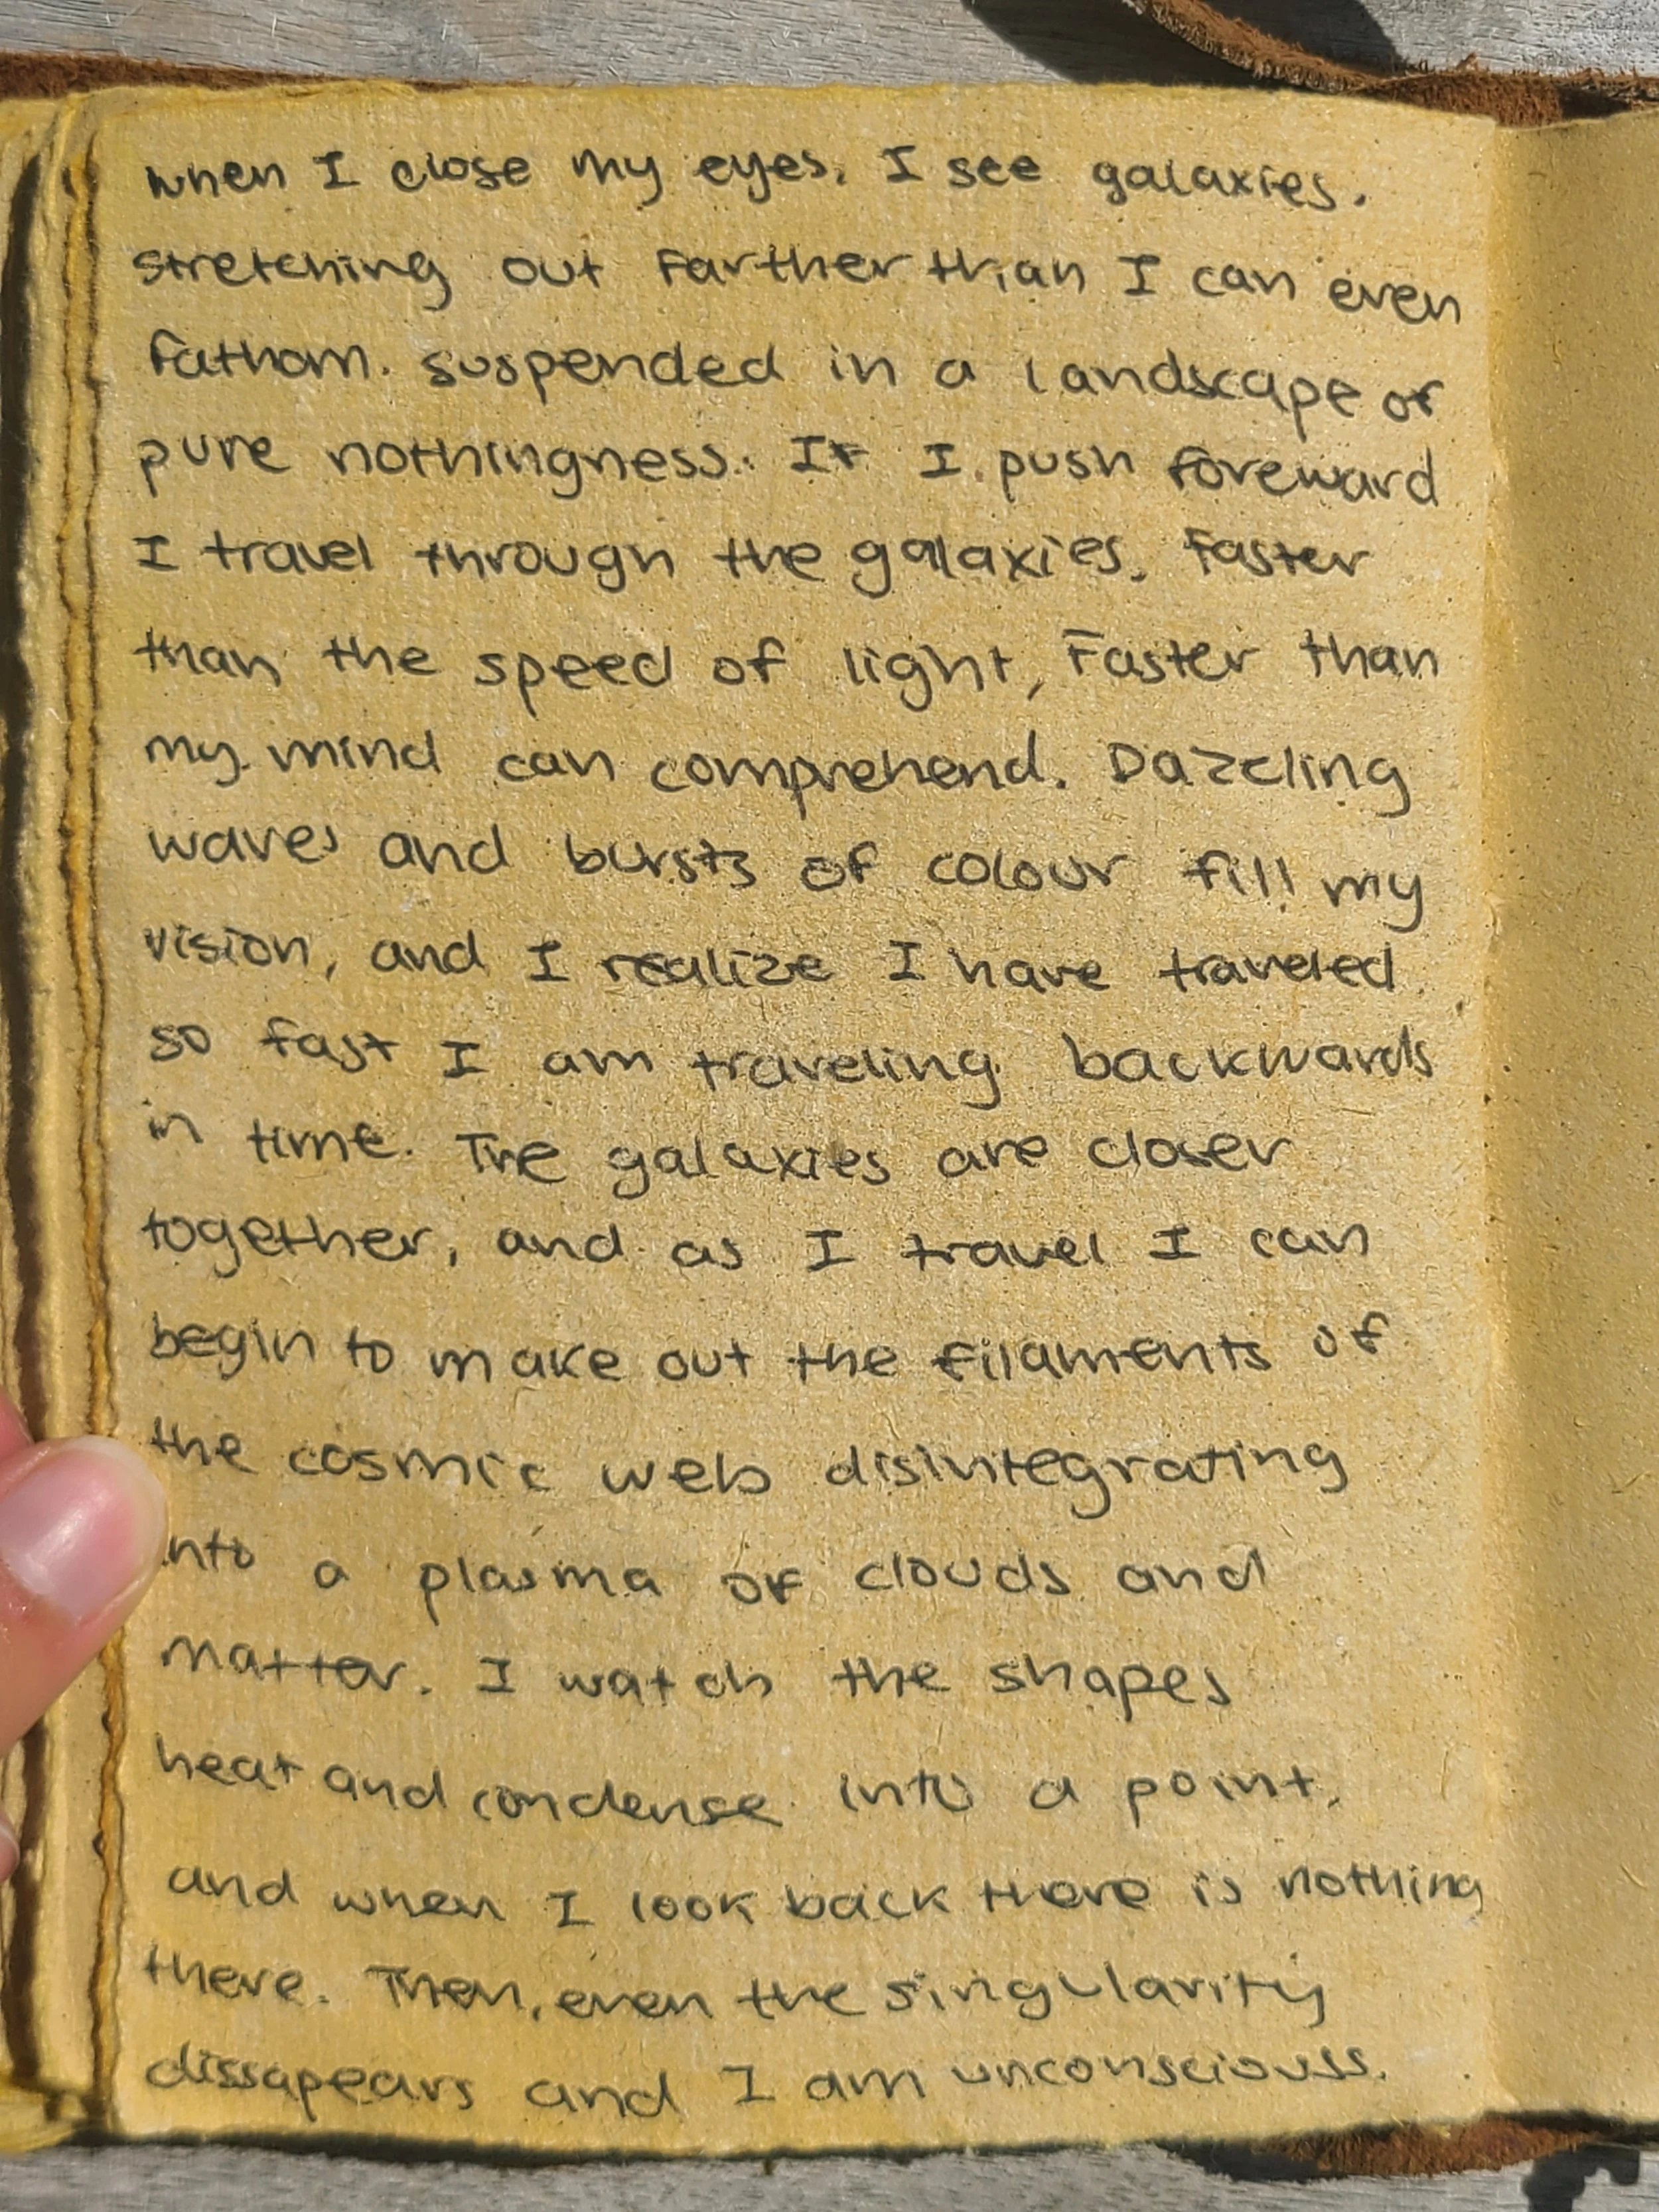 when I close my eyes, I see galaxies.
stretching out farther than I can even
fathom. suspended in a landscape of
pure nothingness. If I push foreward
I travel through the galaxies, faster
than the speed of light, Faster than
my mind can comprehend. Dazzling
waves and bursts of colour fill my
vision, and I realize I have traveled
so fast I am traveling backwards
in time. The galaxies are closer
together, and as I travel I can
begin to make out the filaments of
the cosmic web disintegrating
into a plasma of clouds and
matter. I watch the shapes
heat and condense into a point,
and when I look back there is nothing
there. Then, even the singularity
dissapears and I am unconsciouss.